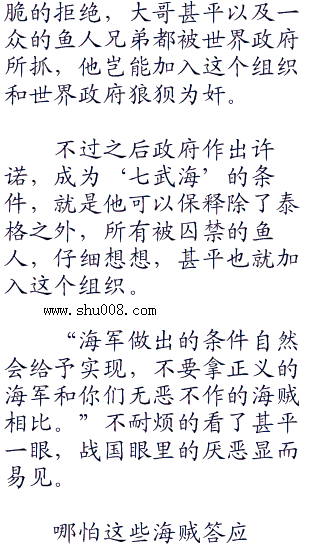 脆的拒绝，大哥甚平以及一
众的鱼人兄弟都被世界政府
所抓，他岂能加入这个组织
和世界政府狼狈为奸。
不过之后政府作出许
诺，成为‘七武海’的条
件，就是他可以保释除了泰
格之外，所有被囚禁的鱼
人，仔细想想，甚平也就加
入这个组织。
www.shu008.com
“海军做出的条件自然
会给予实现，不要拿正义的
海军和你们无恶不作的海贼
相比。”不耐烦的看了甚平
一眼，战国眼里的厌恶显而
易见。
哪怕这些海贼答应